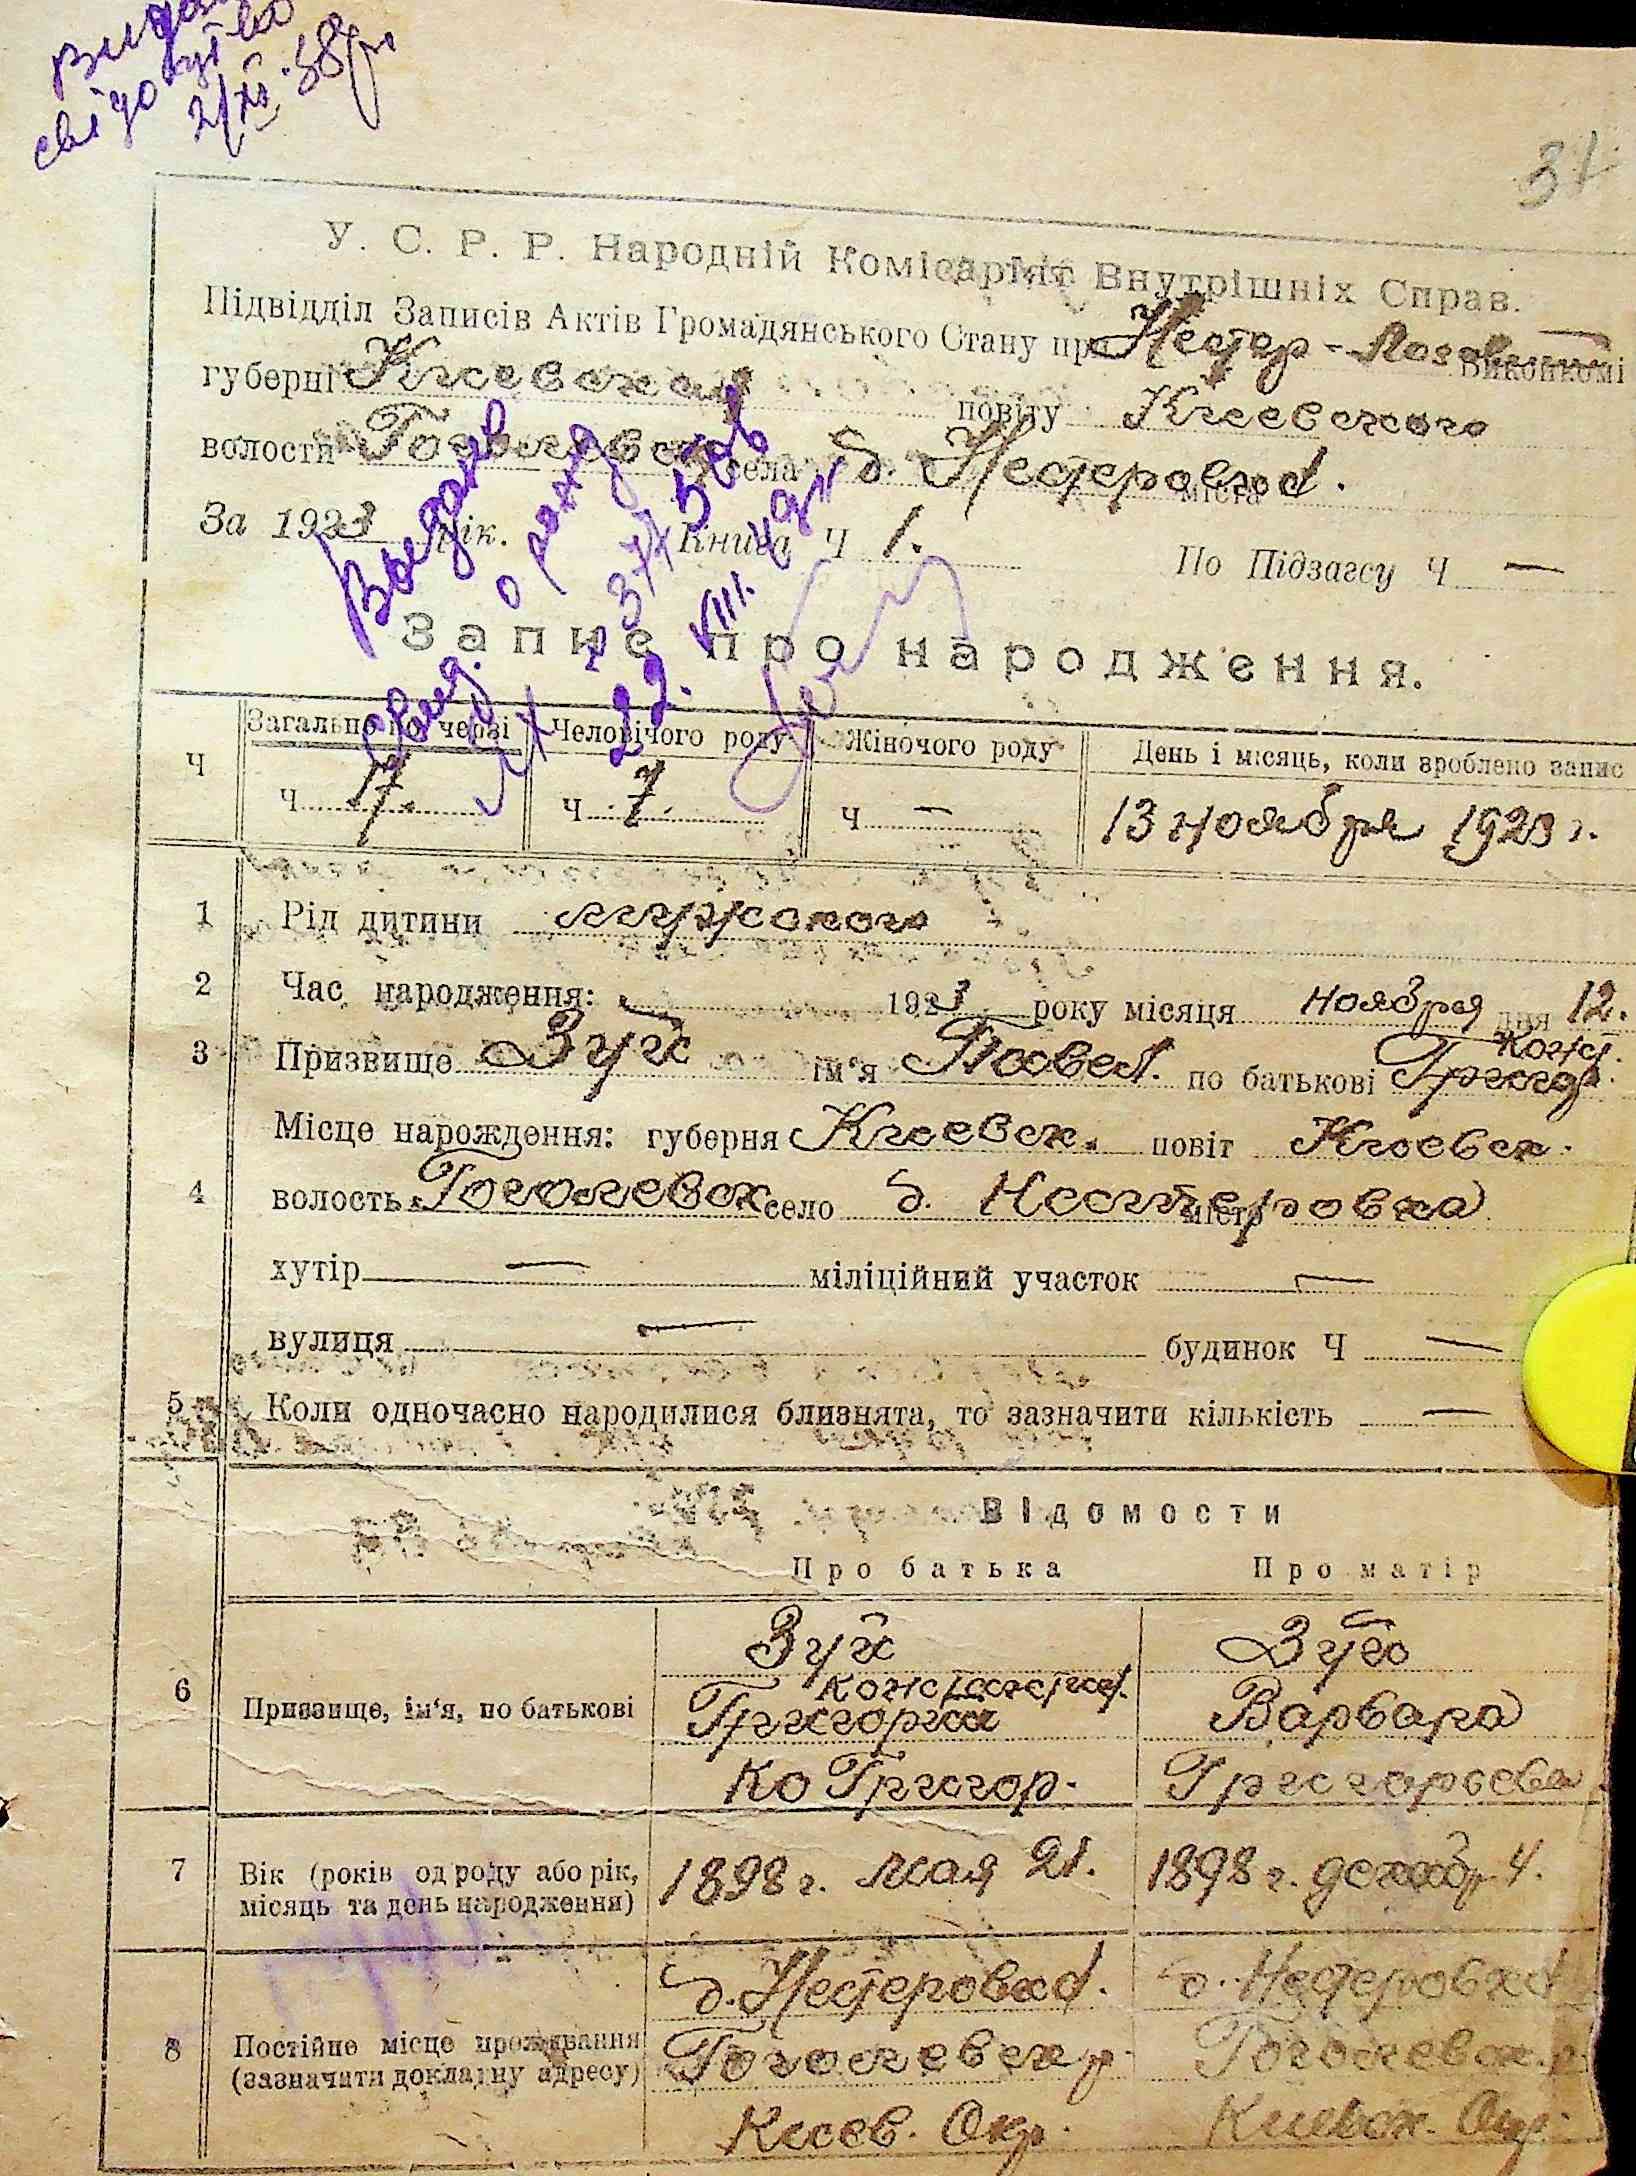 свідоцтво
2/XI.38р
37
У. С. Р. Р. Народній Комісаріят Внутрішніх Справ.
Підвідділ Записів Актів Громадянського Стану при Нестер-Лозов Виконкомі
губерні Киевская повіту Киевского
волости Гоголевск села д. Нестеровка міста
За 1923 рік. Книга Ч 1. По Підзагсу Ч —
Запис про народження.
Ч Загально по черзі Человічого роду Жіночого роду День і місяць, коли зроблено запис
Ч 17. Ч 7. Ч — 13 ноября 1923 г.
1 Рід дитини мужского
2 Час народження: 1923 року місяця ноября дня 12.
Конст.
3 Призвище Зуй ім'я Павел. по батькові Григор.
Місце нарождення: губерня Киевск. повіт Киевск.
4 волость Гоголевск село д. Нестеровка місто
хутір — міліційний участок —
вулиця — будинок Ч —
5 Коли одночасно народилися близнята, то зазначити кількість —
Відомости
Про батька Про матір
Зуй Зуй
Константин.
6 Призвище, ім'я, по батькові Григорий Варвара
Ко Григор. Григорьева
7 Вік (років од роду або рік, місяць та день народження) 1898 г. мая 21. 1898 г. декабр. 4.
д. Нестеровка. д. Нестеровка
8 Постійне місце проживання Гоголевск р. Гоголевск. р.
(зазначити докладну адресу) Киев. Окр. Киевск. Окр.